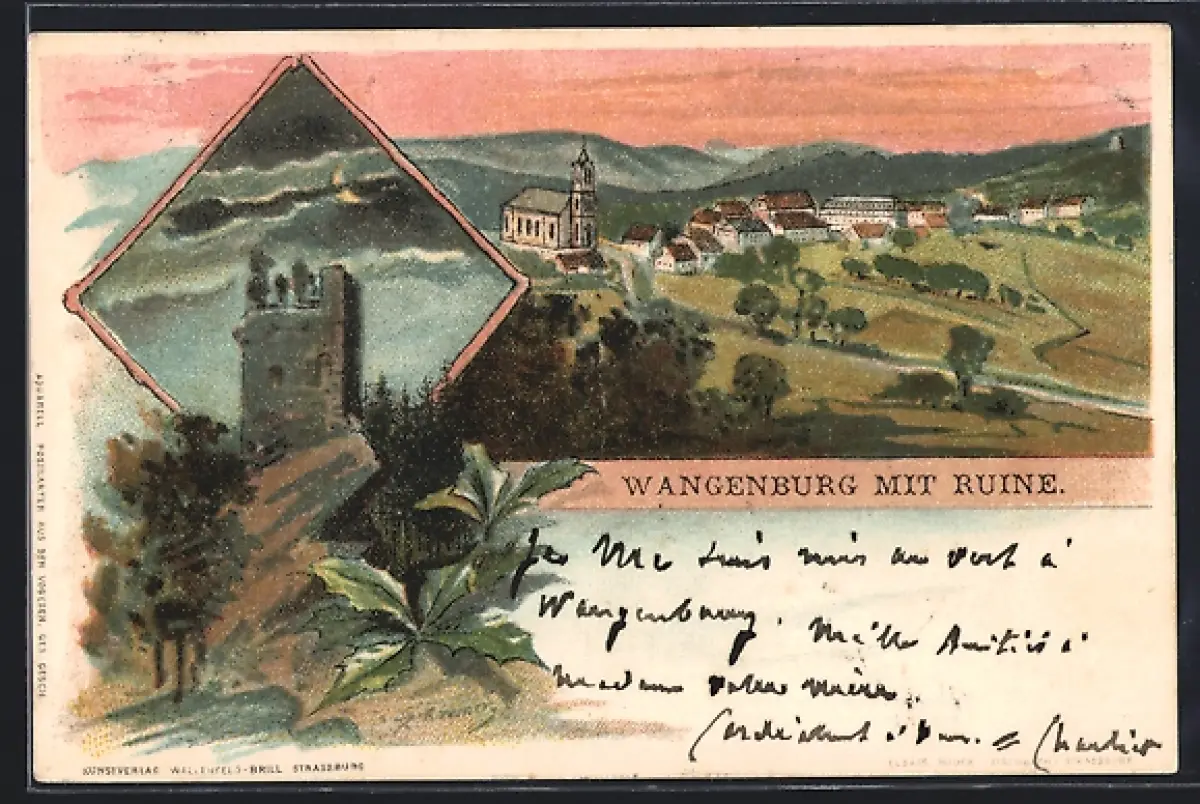 WANGENBURG MIT RUINE.
Je me suis mis au vert à
Wangenbourg. Mille Amitiés à
Madame votre mère.
Cordialement à vous. =
KUNSTVERLAG WALLENFELS-BRILL STRASSBURG
AQUARELL POSTKARTEN AUS DEN VOGESEN. GES. GESCH.